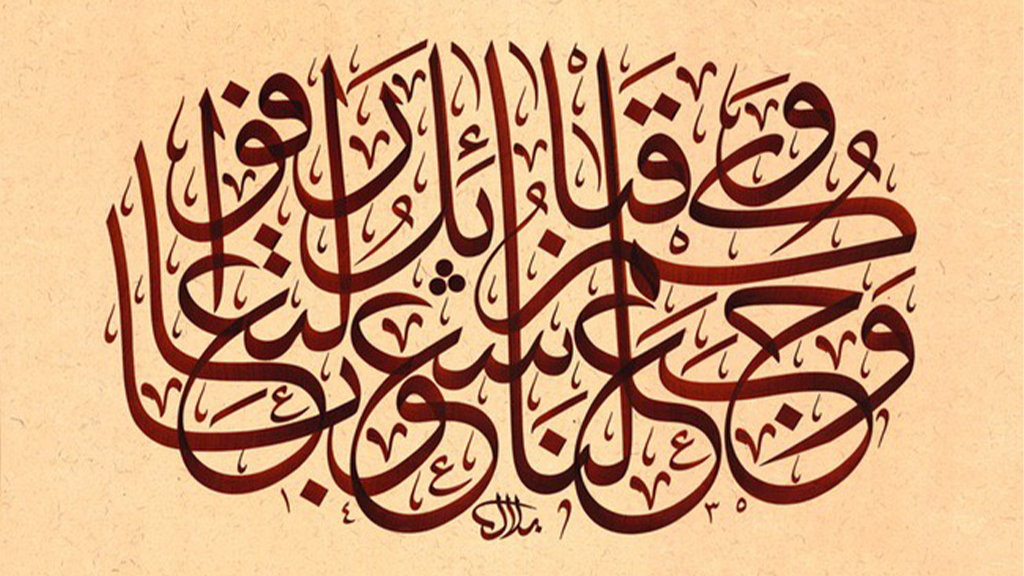 وَجَعَلْنَاكُمْ شُعُوبًا وَقَبَائِلَ لِتَعَارَفُوا
بلال
١٤٣٥